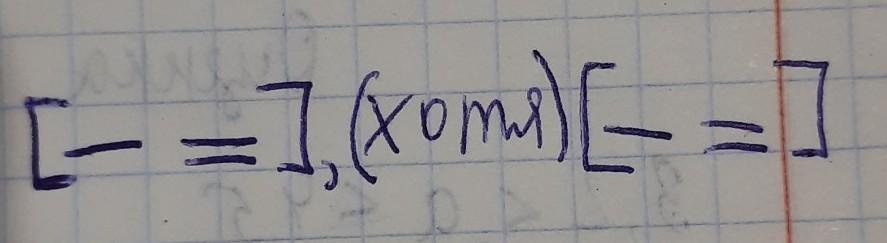 [— =], (хотя) [— =]